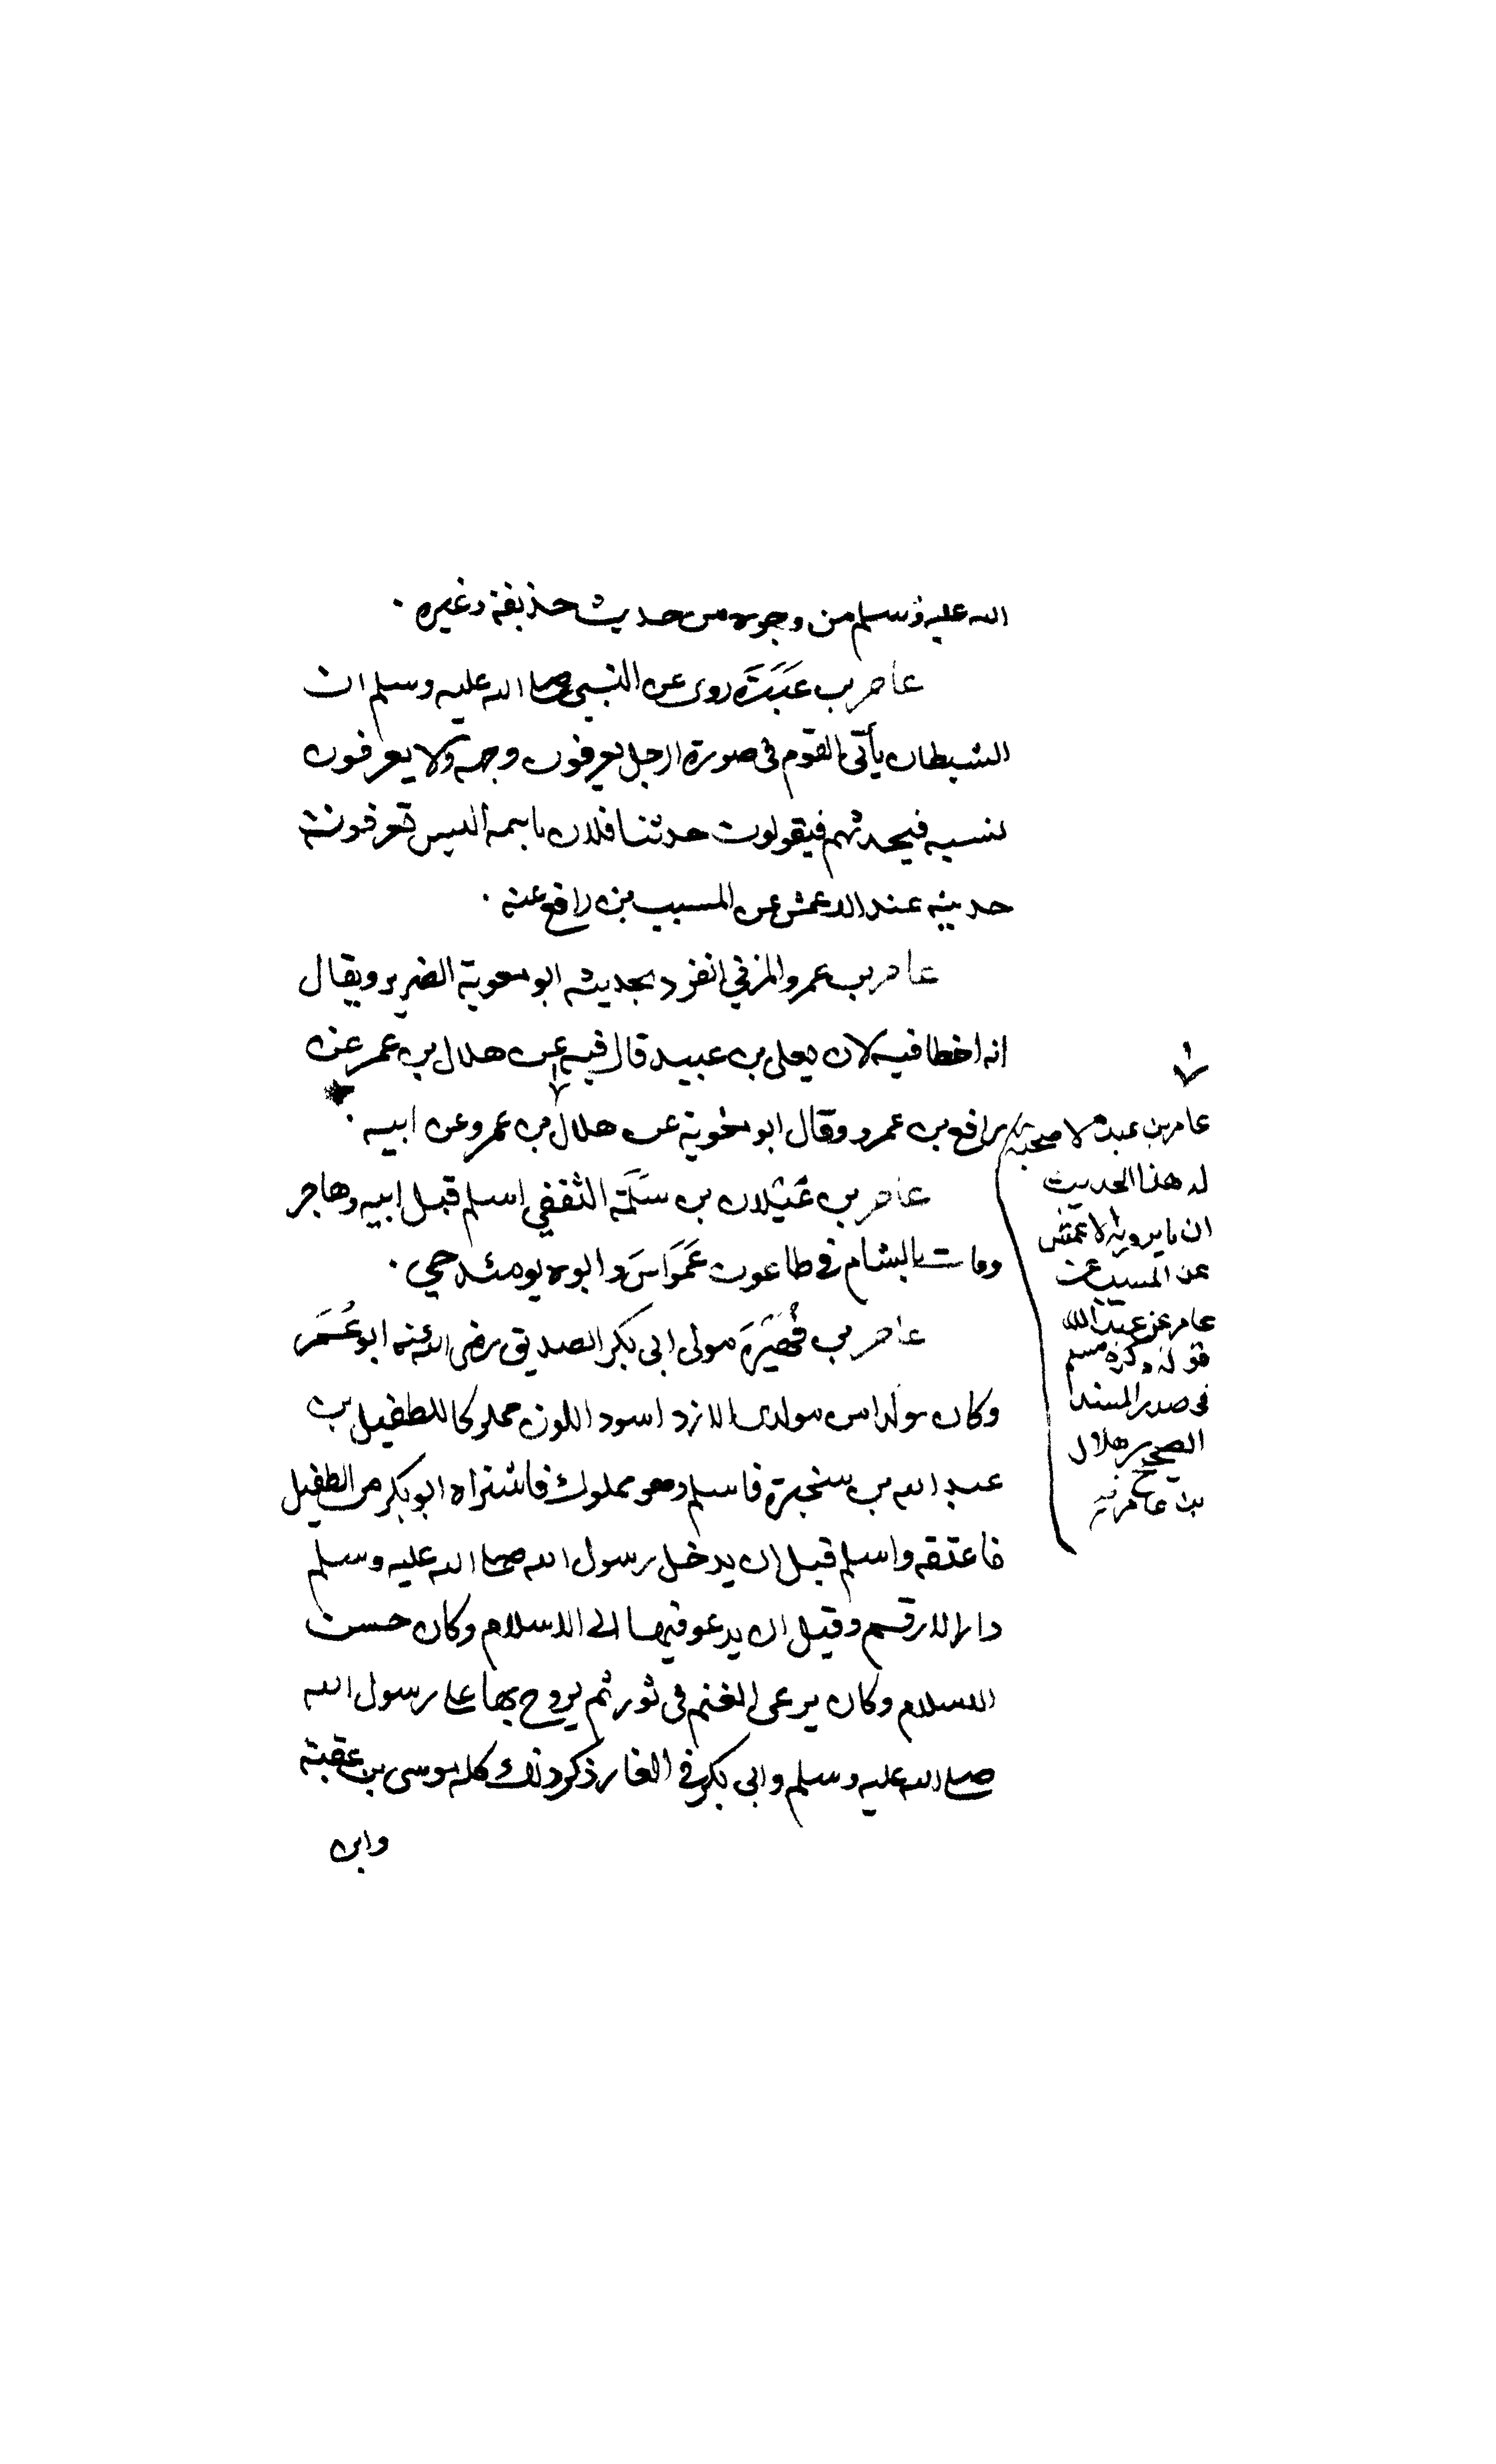 الله عليه وسلم من وجوه من حديث حذيفة وغيره .
عامر بن عَبَدَة روى عن النبي صلى الله عليه وسلم ان
الشيطان يأتى القوم فى صورة الرجل يعرفون وجهه ولا يعرفون
نسبه فيحدثهم فيقولون حدثنا فلان ما اسمه اليس تعرفونه
حديثه عند الاعمش عن المسيب بن رافع عنه .
عامر بن عمرو المزني انفرد بحديثه ابو معوية الضرير ويقال
انه اخطا فيه لان يعلى بن عبيد قال فيه عن هلال بن عمر عن
رافع بن عمرو وقال ابو معوية عن هلال بن عمرو عن ابيه .
عامر بن غَيْلان بن سَلَمَة الثقفي اسلم قبل ابيه وهاجر
ومات بالشام في طاعون عَمَوَاسَ وابوه يومئذ حي .
عامر بن فُهَيْرَة مولى ابى بكر الصديق رضى الله عنه ابو عُمَر
وكان مولدا من مولدى الازد اسود اللون مملوكا للطفيل بن
عبد الله بن سخبرة فاسلم وهو مملوك فاشتراه ابو بكر من الطفيل
فاعتقه واسلم قبل ان يدخل رسول الله صلى الله عليه وسلم
دار الارقم وقبل ان يدعو فيها الى الاسلام وكان حسن
الاسلام وكان يرعى الغنم فى ثور ثم يروح بها على رسول الله
صلى الله عليه وسلم وابى بكر في الغار ذكر ذلك كله موسى بن عقبة
وابن
عامر بن عبدة لا صحبة
له هذا الحديث
ان ما يرويه الاعمش
عن المسيب عن
عامر عن عبد الله
قوله ذكره مسلم
فى صدر المسند
الصحيح هلال
بن عامر